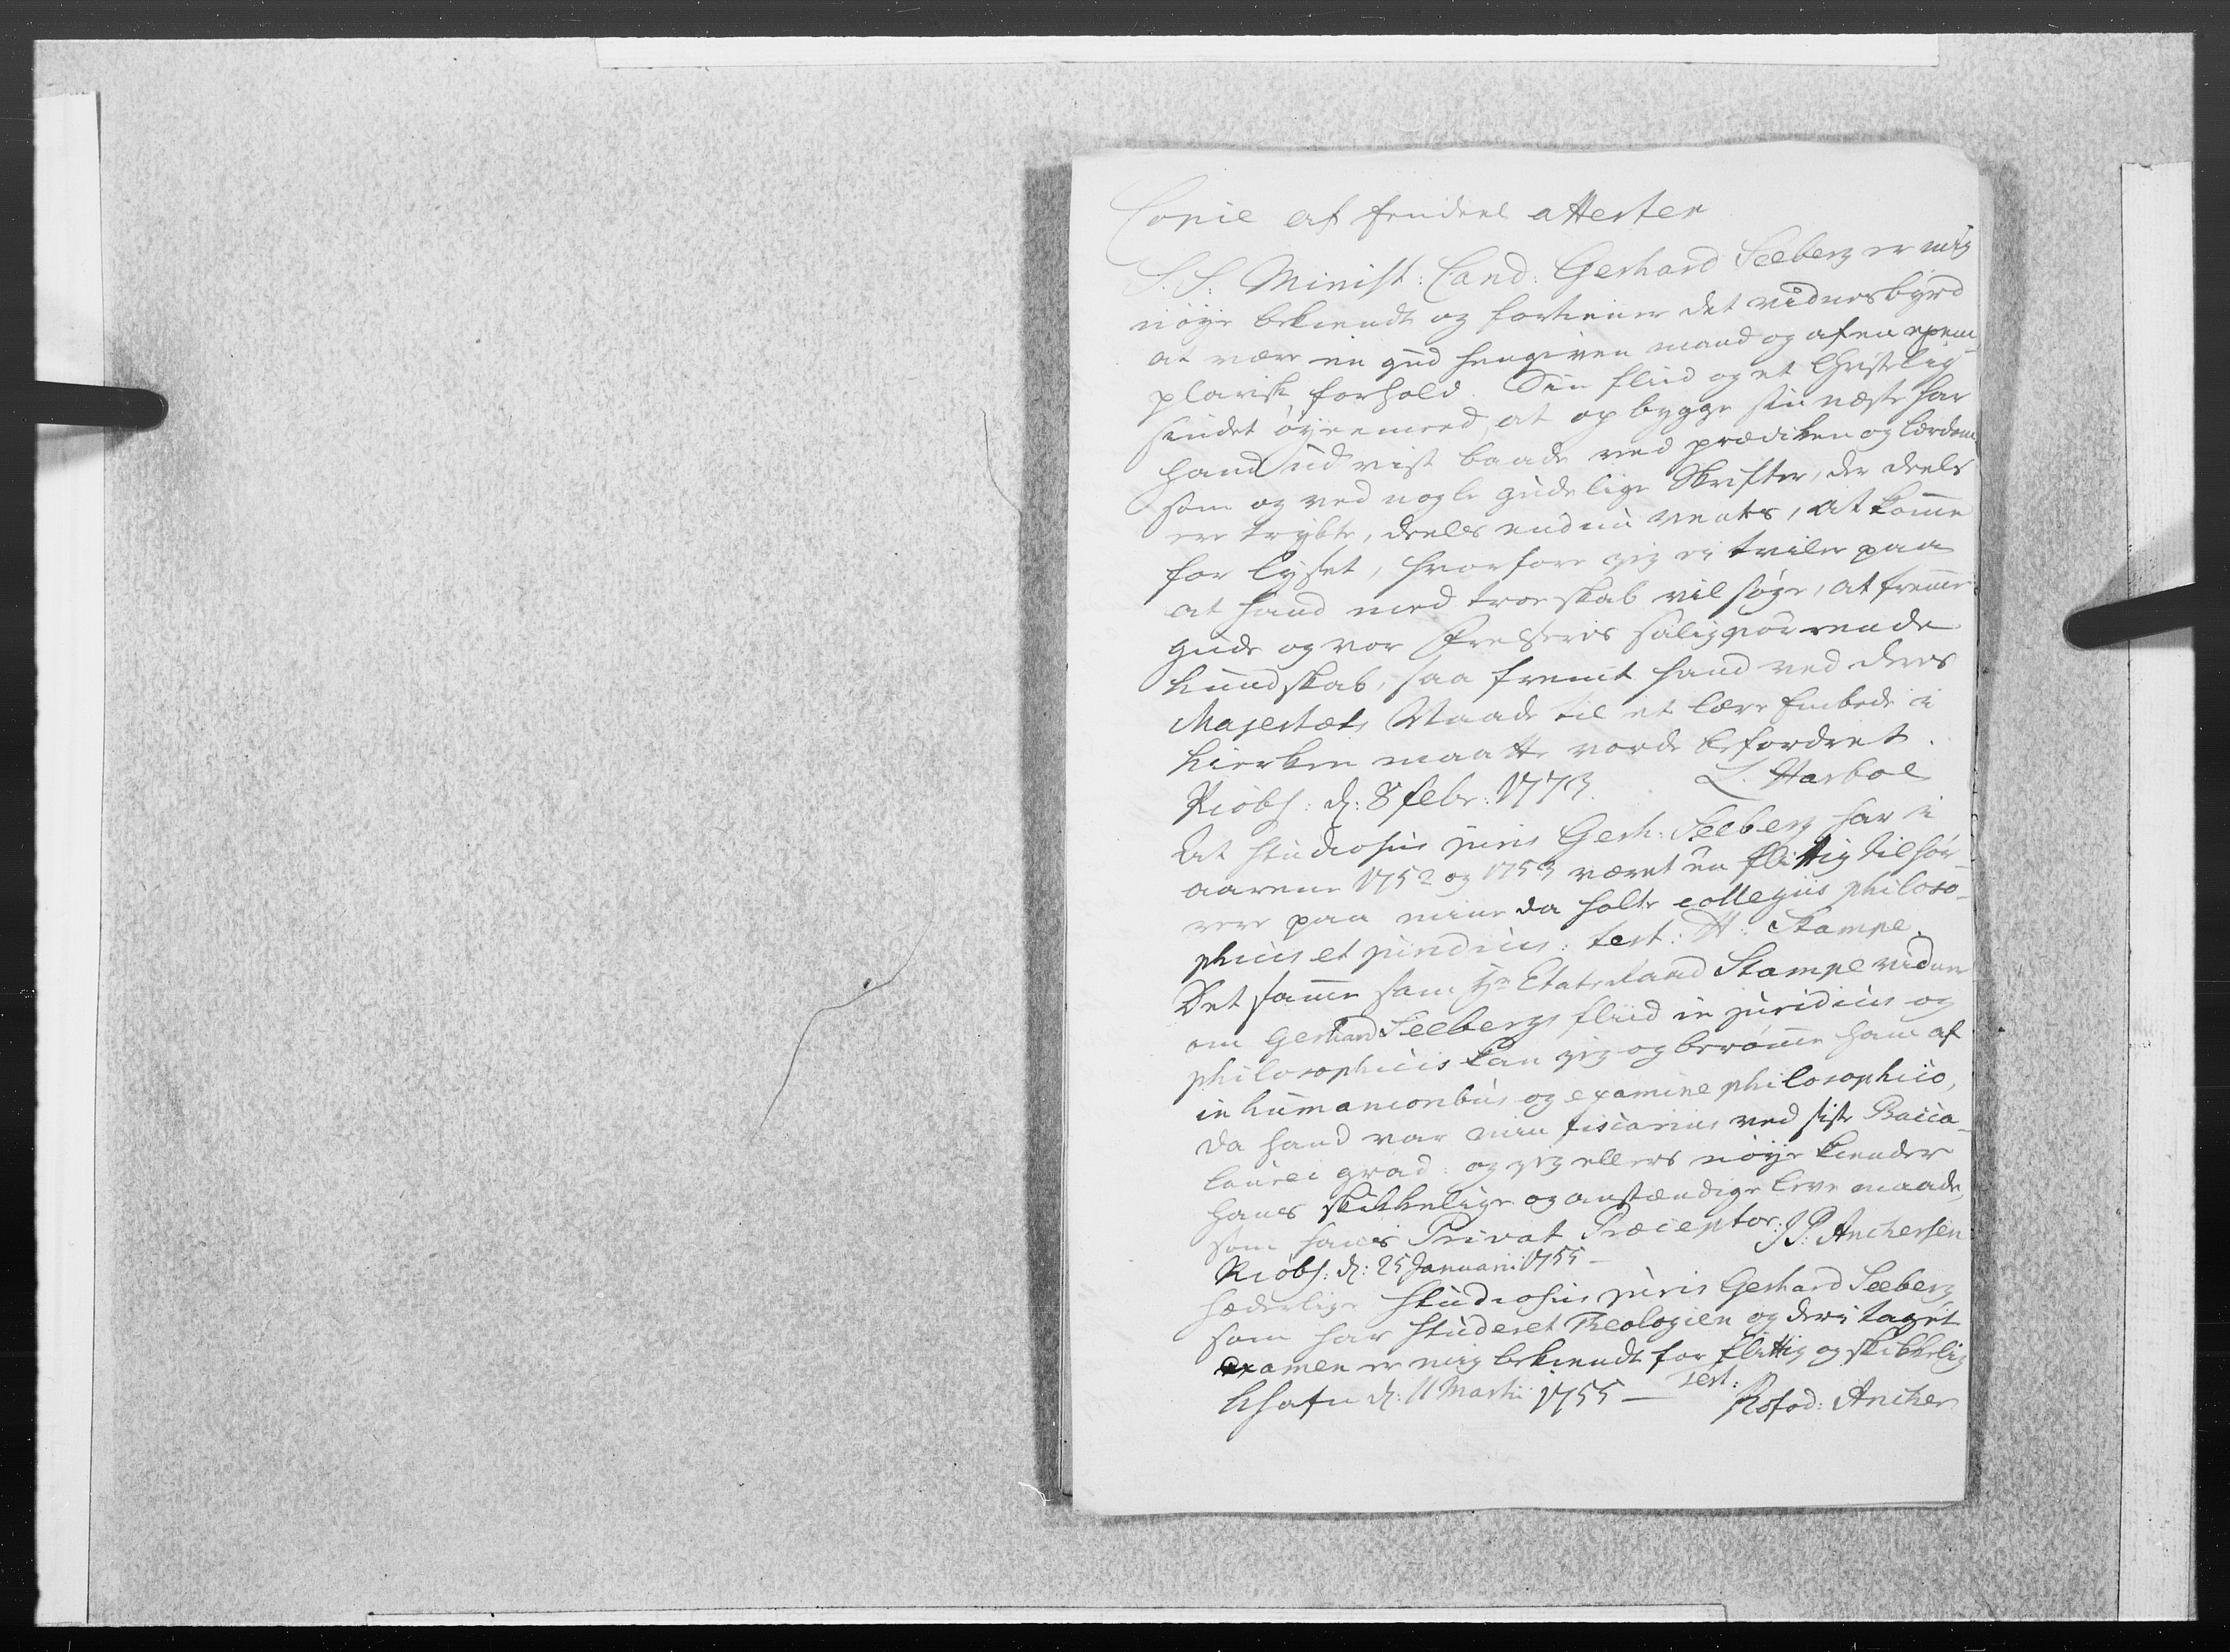 Copie af Endeel attester
S. S. Minist: Cand: Gerhard Seeberg er mig
nøye bekiendt og fortiener det vidnesbyrd
at være en gud hengiven mand og af en exem-
plarisk forhold. Din fliid og et Christelig
sindet øyeemeed, at opbygge sin næste har
hand udvist baade ved prædiken og lærdom
som og ved nogle gudelige Skrifter, der deels
ere trykte, deels endnu ventes, at komme
for lyset, hvorfore jeg ei tviler paa
at hand med troeskab vil søge, at fremme
guds og vor Frelseris saliggiørende
kundskab, saa fremt hand ved deres
Majestæts Naade til et lære Embede i
kierken maatte vorde befordret.
Kiøbh: d: 8 febr: 1773. L. Harboe
At studiosus juris Gerh: Seeberg har i
aarene 1752 og 1753 været en flittig tilhø-
rere paa mine da holte collegiis philoso-
phicis et juridicis: test: H: Stampe.
Det samme som Hr Etatsraad Stampe vidner
om Gerhard Seebergs fliid in juridicis og
philosophicis kan jeg og berømme ham af
in humanioribus og examine philosophico,
da hand var min discipulus ved sist Bacca-
laurei grad: og jeg ellers nøye kiender
hans skikkelige og anstændige leve maade,
som hans Privat Præceptor: J P: Anchersen
Kiøbh: d: 25 Januarii 1755 –
Hæderlige studiosus juris Gerhard Seeberg
som har studeret Theologien og deri taget
examen er mig bekiendt for flittig og skikkelig
Khafn d: 11 Martii 1755 – Test:
Kofod: Ancher